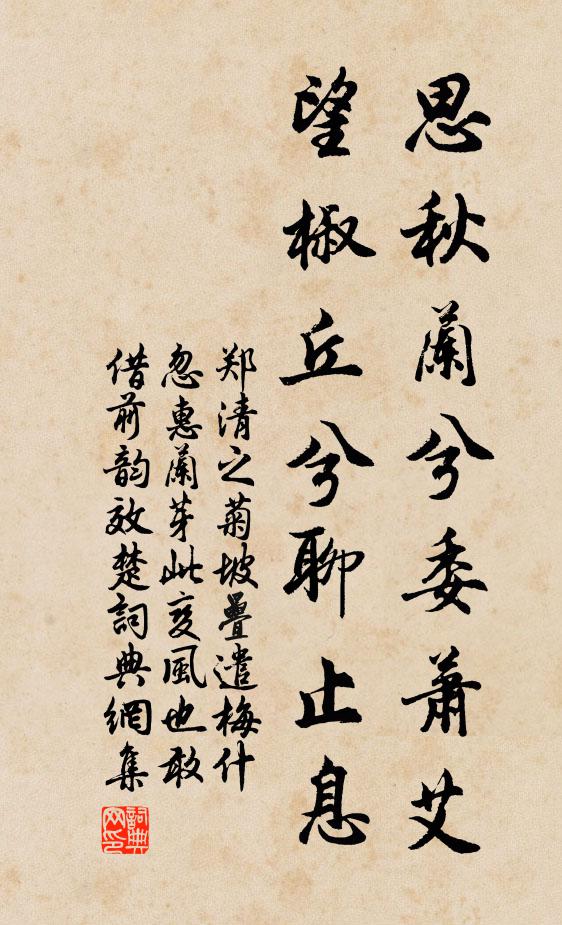 思秋蘭兮委蕭艾
望椒丘兮聊止息
郑清之菊坡疊遣梅什
忽惠蘭芽此变風也敢
借前韵效楚詞典網集
詞典网印